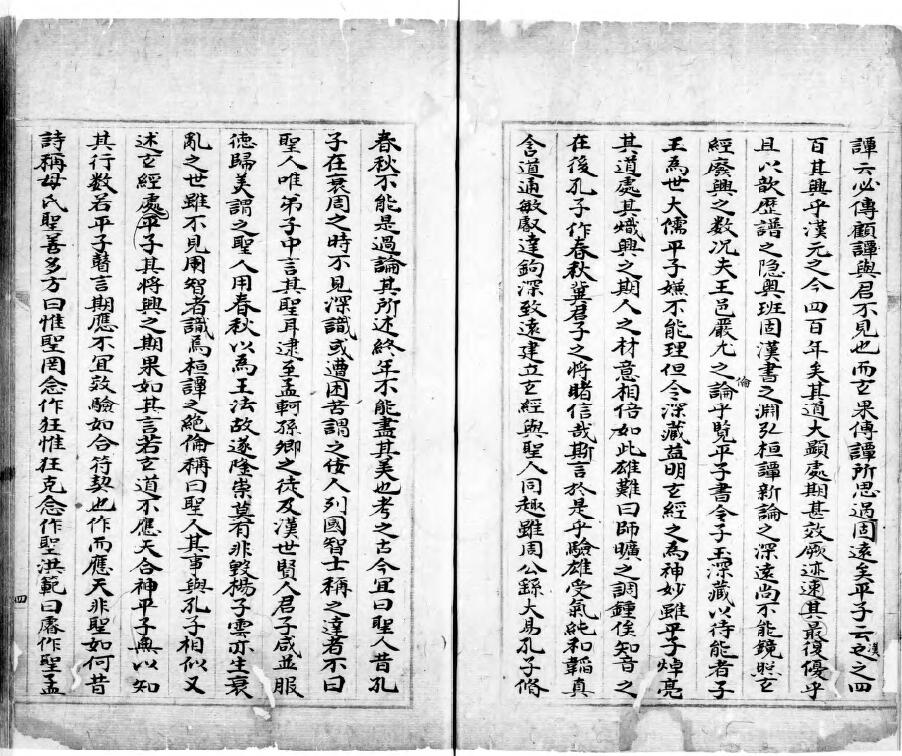 譚云必傳顧譚與君不見也而玄果傳譚所思過固遠矣平子云漢之四
百其興乎漢元之今四百年矣其道大顯處期甚效厥迹速其最復優乎
且以歆歷譜之隐奧班固漢書之淵弘桓譚新論之深遠尚不能鏡照玄
經廢興之数况夫王邑嚴尤之論乎覽平子書令子玉深藏以待能者子
倫
王為世大儒平子嫌不能理但令深藏益明玄經之為神妙雖平子焯亮
其道處其熾興之期人之材意相倍如此雄難曰師曠之調鍾俟知音之
在後孔子作春秋冀君子之將睹信哉斯言於是乎驗雄受氣純和韜真
含道通敏叡達鉤深致遠建立玄經與聖人同趣雖周公繇大易孔子脩
春秋不能是過論其所述終年不能盡其美也考之古今宜曰聖人昔孔
子在衰周之時不見深識或遭困苦謂之佞人列國智士稱之達者不曰
聖人唯弟子中言其聖耳逮至孟軻孫卿之徒及漢世賢人君子咸並服
德歸美謂之聖人用春秋以為王法故遂隆崇莫有非毀楊子雲亦生衰
亂之世雖不見用智者識焉桓譚之絶倫稱曰聖人其事與孔子相似又
述玄經處平子其將興之期果如其言若玄道不應天合神平子無以知
其行数若平子瞽言期應不宜效驗如合符契也作而應天非聖如何昔
詩稱母氏聖善多方曰惟聖罔念作狂惟狂克念作聖洪範曰睿作聖孟
四